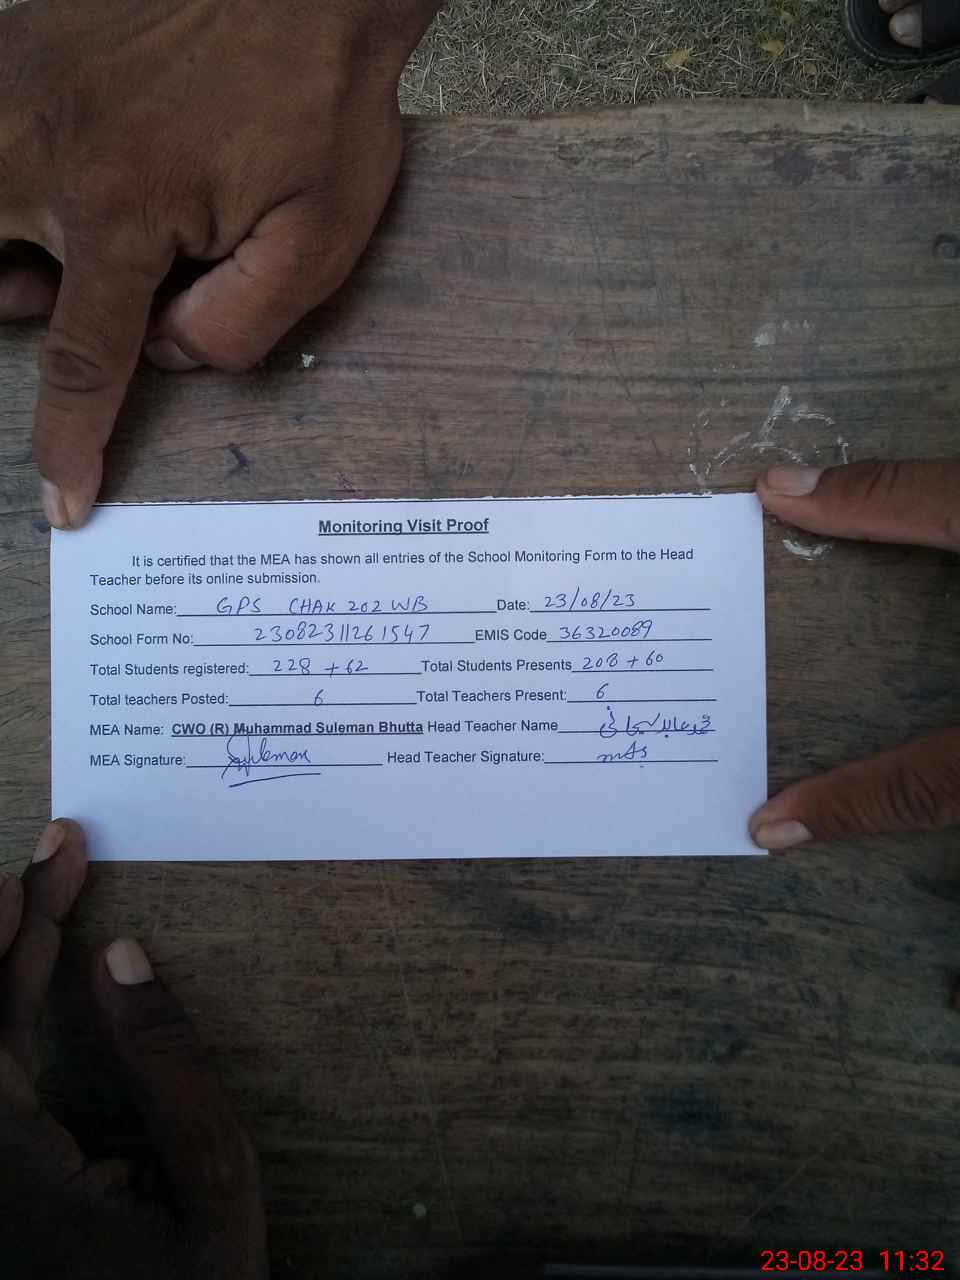 Monitoring Visit Proof
It is certified that the MEA has shown all entries of the School Monitoring Form to the Head
Teacher before its online submission.
School Name: GPS CHAK 202 WB Date: 23/08/23
School Form No: 23082311261547 EMIS Code 36320089
Total Students registered: 228 + 62 Total Students Presents 208 + 60
Total teachers Posted: 6 Total Teachers Present: 6
MEA Name: CWO (R) Muhammad Suleman Bhutta Head Teacher Name
MEA Signature: Suleman Head Teacher Signature:
23-08-23 11:32